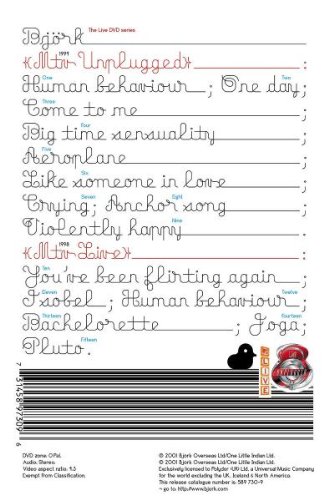 Björk The Live DVD series
1994
«Mtv Unplugged» :
One Two
Human behaviour ; One day ;
Three
Come to me ;
Four
Big time sensuality ;
Five
Aeroplane ;
Six
Like someone in love ;
Seven Eight
Crying ; Anchor song ;
Nine
Violently happy .
1998
«Mtv Live» :
Ten
You've been flirting again ;
Eleven Twelve
Isobel ; Human behaviour ;
Thirteen Fourteen
Bachelorette ; Joga ;
Fifteen
Pluto .
LIVE
DVD zone. 0 Pal.
Audio. Stereo.
Exempt from Classification.
© 2001 Björk Overseas Ltd/One Little Indian Ltd.
℗ 2001 Björk Overseas Ltd/One Little Indian Ltd.
Exclusively licensed to Polydor (UK) Ltd, a Universal Music Company
for the world excluding the UK, Iceland & North America.
This release catalogue number 589 730-9
~ go to. http://www.bjork.com